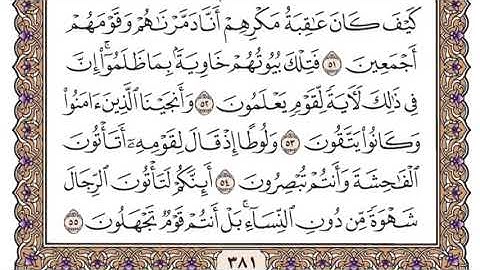 كَيۡفَ كَانَ عَٰقِبَةُ مَكۡرِهِمۡ أَنَّا دَمَّرۡنَٰهُمۡ وَقَوۡمَهُمۡ
أَجۡمَعِينَ ٥١ فَتِلۡكَ بُيُوتُهُمۡ خَاوِيَةَۢ بِمَا ظَلَمُوٓاْۚ إِنَّ
فِي ذَٰلِكَ لَأٓيَةٗ لِّقَوۡمٖ يَعۡلَمُونَ ٥٢ وَأَنجَيۡنَا ٱلَّذِينَ ءَامَنُواْ
وَكَانُواْ يَتَّقُونَ ٥٣ وَلُوطًا إِذۡ قَالَ لِقَوۡمِهِۦٓ أَتَأۡتُونَ
ٱلۡفَٰحِشَةَ وَأَنتُمۡ تُبۡصِرُونَ ٥٤ أَئِنَّكُمۡ لَتَأۡتُونَ ٱلرِّجَالَ
شَهۡوَةٗ مِّن دُونِ ٱلنِّسَآءِۚ بَلۡ أَنتُمۡ قَوۡمٞ تَجۡهَلُونَ ٥٥
٣٨١